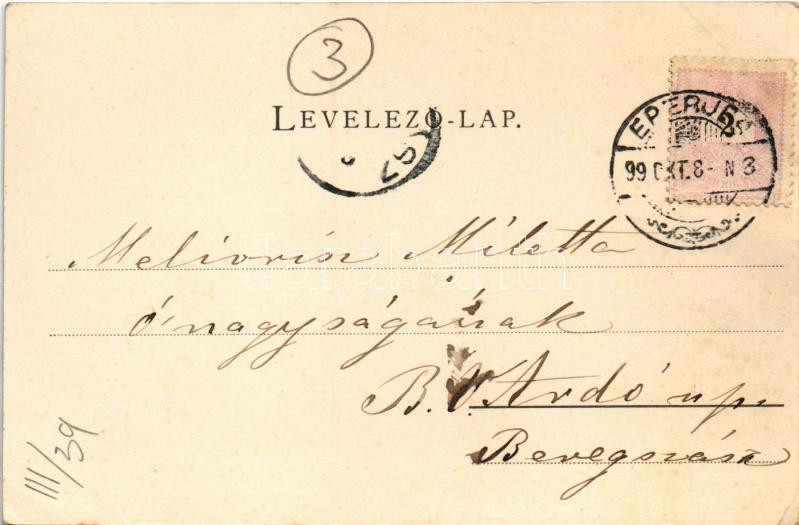 3
LEVELEZŐ-LAP.
EPERJES
99 OKT. 8- N 3
Meliorisz Miletta
ő nagyságának
B. V. Ardó up.
Beregszász
III/39
darabanth